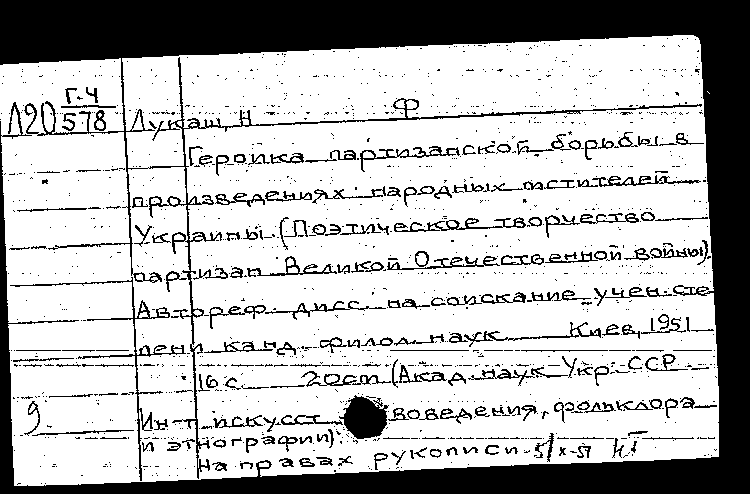 Г-4
Л20 578 Лукаш, Н Ф
Героика партизанской борьбы в
произведениях народных мстителей
Украины. (Поэтическое творчество
партизан Великой Отечественной войны)
Автореф. дисс. на соискание учен. сте
пени канд. филол. наук Киев, 1951
16 с. 20 cm (Акад. наук Укр. ССР
9 Ин-т искусст воведения, фольклора
и этнографии).
На правах рукописи